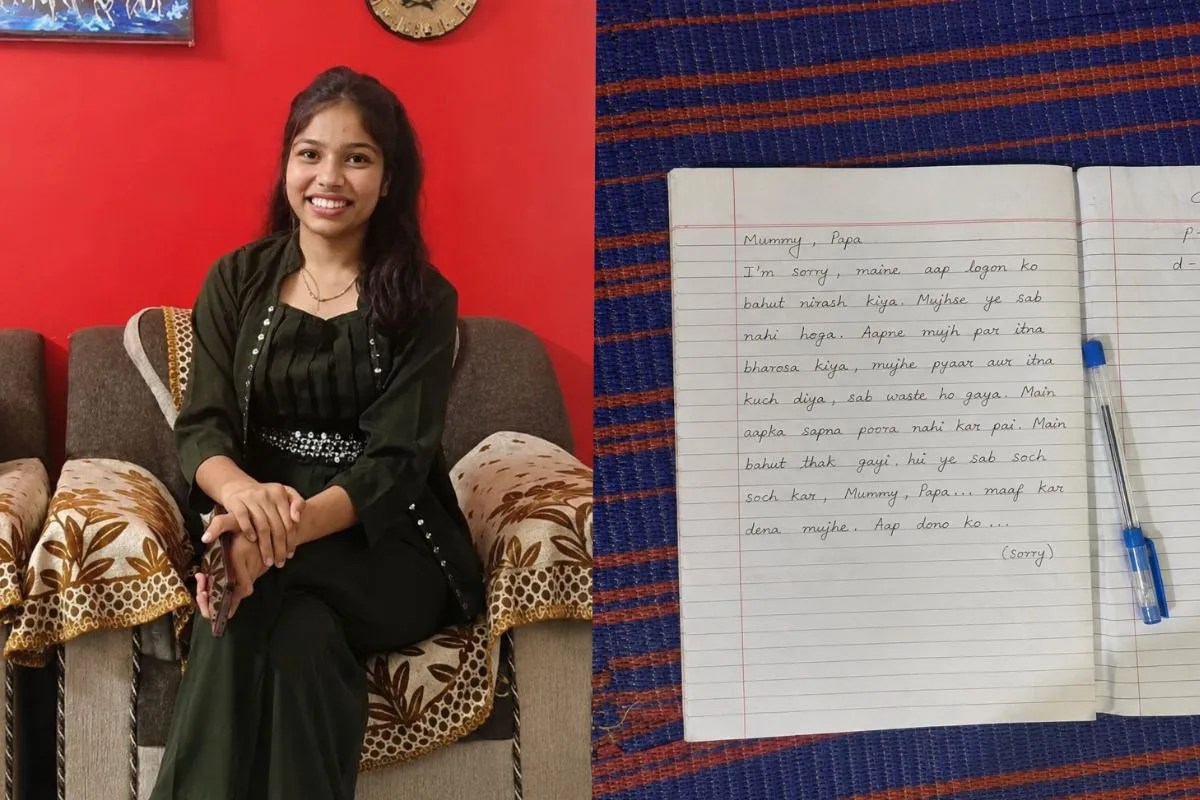 Mummy, Papa
I'm sorry, maine aap logon ko
bahut nirash kiya. Mujhse ye sab
nahi hoga. Aapne mujh par itna
bharosa kiya, mujhe pyaar aur itna
kuch diya, sab waste ho gaya. Main
aapka sapna poora nahi kar pai. Main
bahut thak gayi hu ye sab soch
soch kar, Mummy, Papa... maaf kar
dena mujhe. Aap dono ko...
(Sorry)
p-
d-